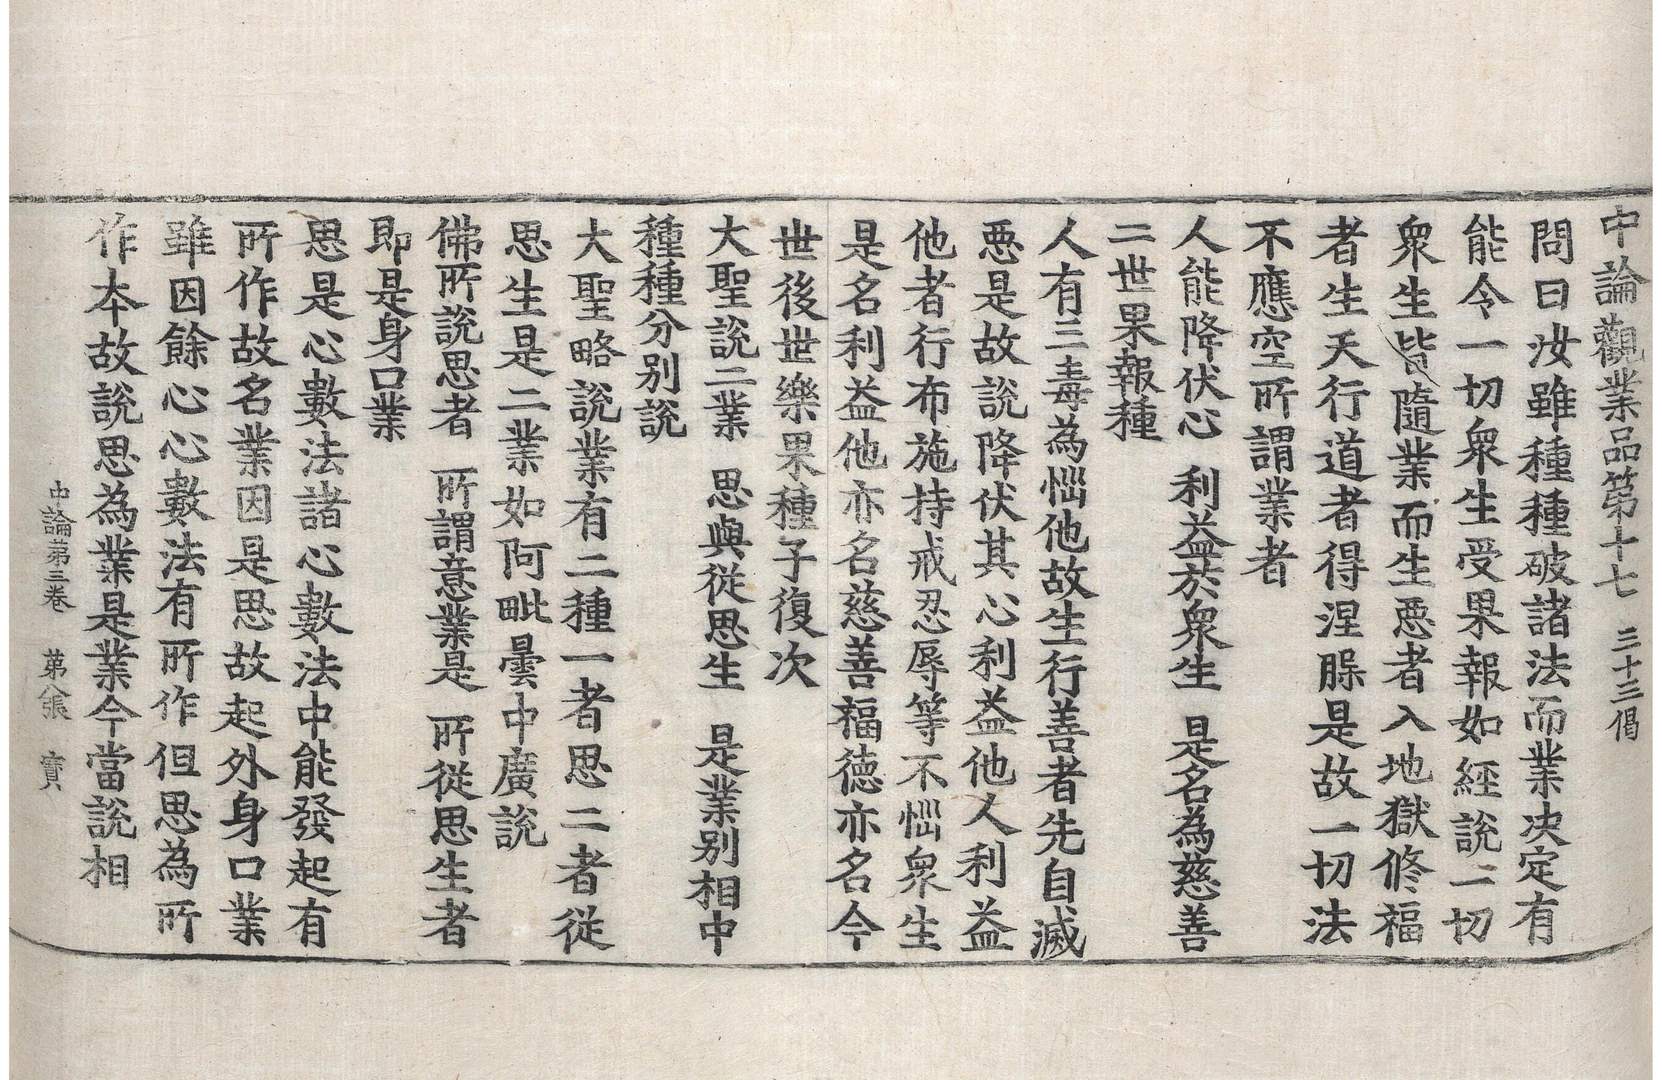 中論觀業品第十七 三十三偈
問曰汝雖種種破諸法而業决定有
能令一切衆生受果報如經說一切
衆生皆隨業而生惡者入地獄修福
者生天行道者得涅槃是故一切法
不應空所謂業者
人能降伏心 利益於衆生 是名為慈善
二世果報種
人有三毒為惱他故生行善者先自滅
惡是故說降伏其心利益他人利益
他者行布施持戒忍辱等不惱衆生
是名利益他亦名慈善福德亦名今
世後世樂果種子復次
大聖說二業 思與從思生 是業别相中
種種分别說
大聖略說業有二種一者思二者從
思生是二業如阿毗曇中廣說
佛所說思者 所謂意業是 所從思生者
即是身口業
思是心數法諸心數法中能發起有
所作故名業因是思故起外身口業
雖因餘心心數法有所作但思為所
作夲故說思為業是業今當說相
中論第三卷 第八張 寶